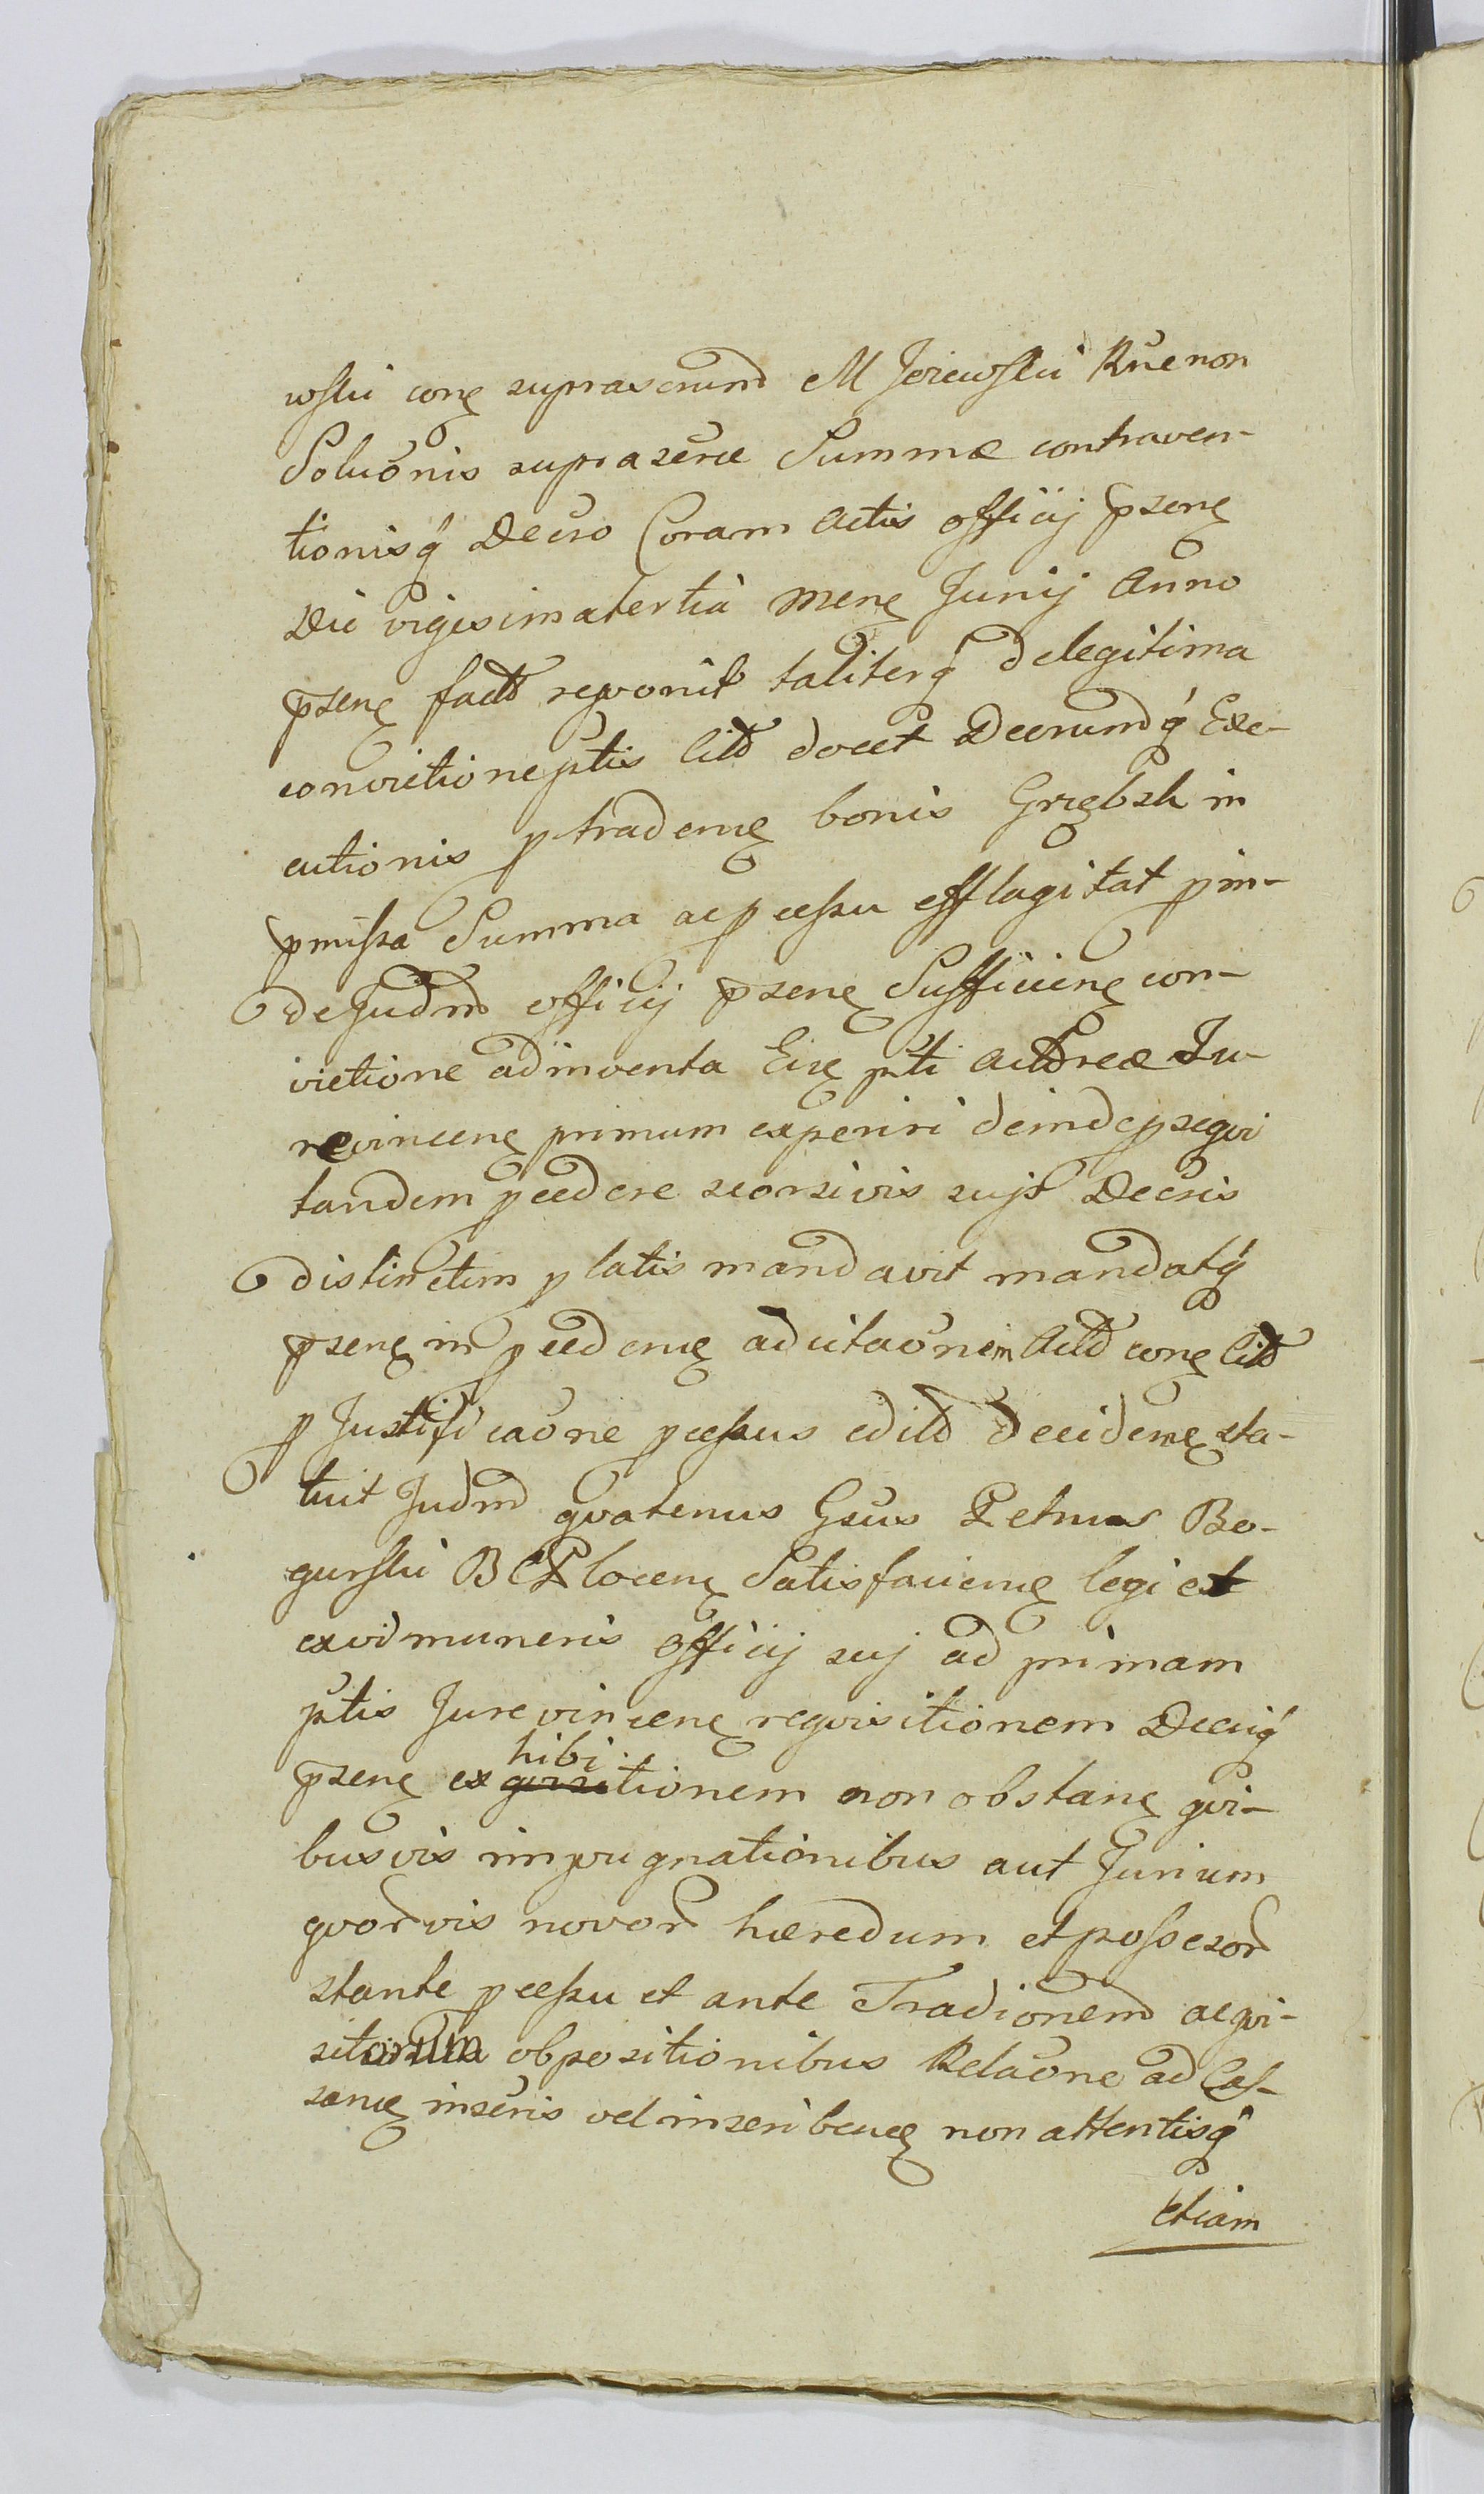 wski conę suprascrund M Jeżewski Rñe non
Soluõnis suprascrae Summæ contraven-
tionisq́ Decro Coram Actis officij p̄senę
Die vigesima tertia Menę Junij Anno
p̄senę fact̃ reponit taliterq́ de legitima
convictione p̃tis Citt̃ docet Decrumq́ Exe-
cutionis p tradenię bonis Grzębsk in
p̄missa Summa ac p̄cessu efflagitat p in-
de Judm̃ officij p̄senę Sufficienę con-
victione adinventa Eisę p̃ti Actoreæ Ju-
revincenę primum experiri deinde p̄segvi
tandem p̄cedere seorsivis sujs Decris
distinctim p̄latis mandavit mandatq́
p̄senę in p̄cedenię ad citaõnem Actt̃ conę Citt̃
p Justificaõne p̄cessus edilt̃ decidenię sta-
tuit Judm̃ qvatenus Gsũs Petrus Bo-
gurski B C Plocenę Satisfacienię legi et
ex vi muneris officij suj ad primam
p̃tis Jurevincenę reqvisitionem Decriq́
p̄senę exhibitionem non obstanę qvi-
busvis impugnationibus aut Jurium
qvorvis novor̃ hæredum et possesor̃
stante p̄cessu et ante Tradionem acqvi-
sitorum obpositionibus Relaõne ad Cas-
sanię inscris vel inscribenię non attentisq́
etiam